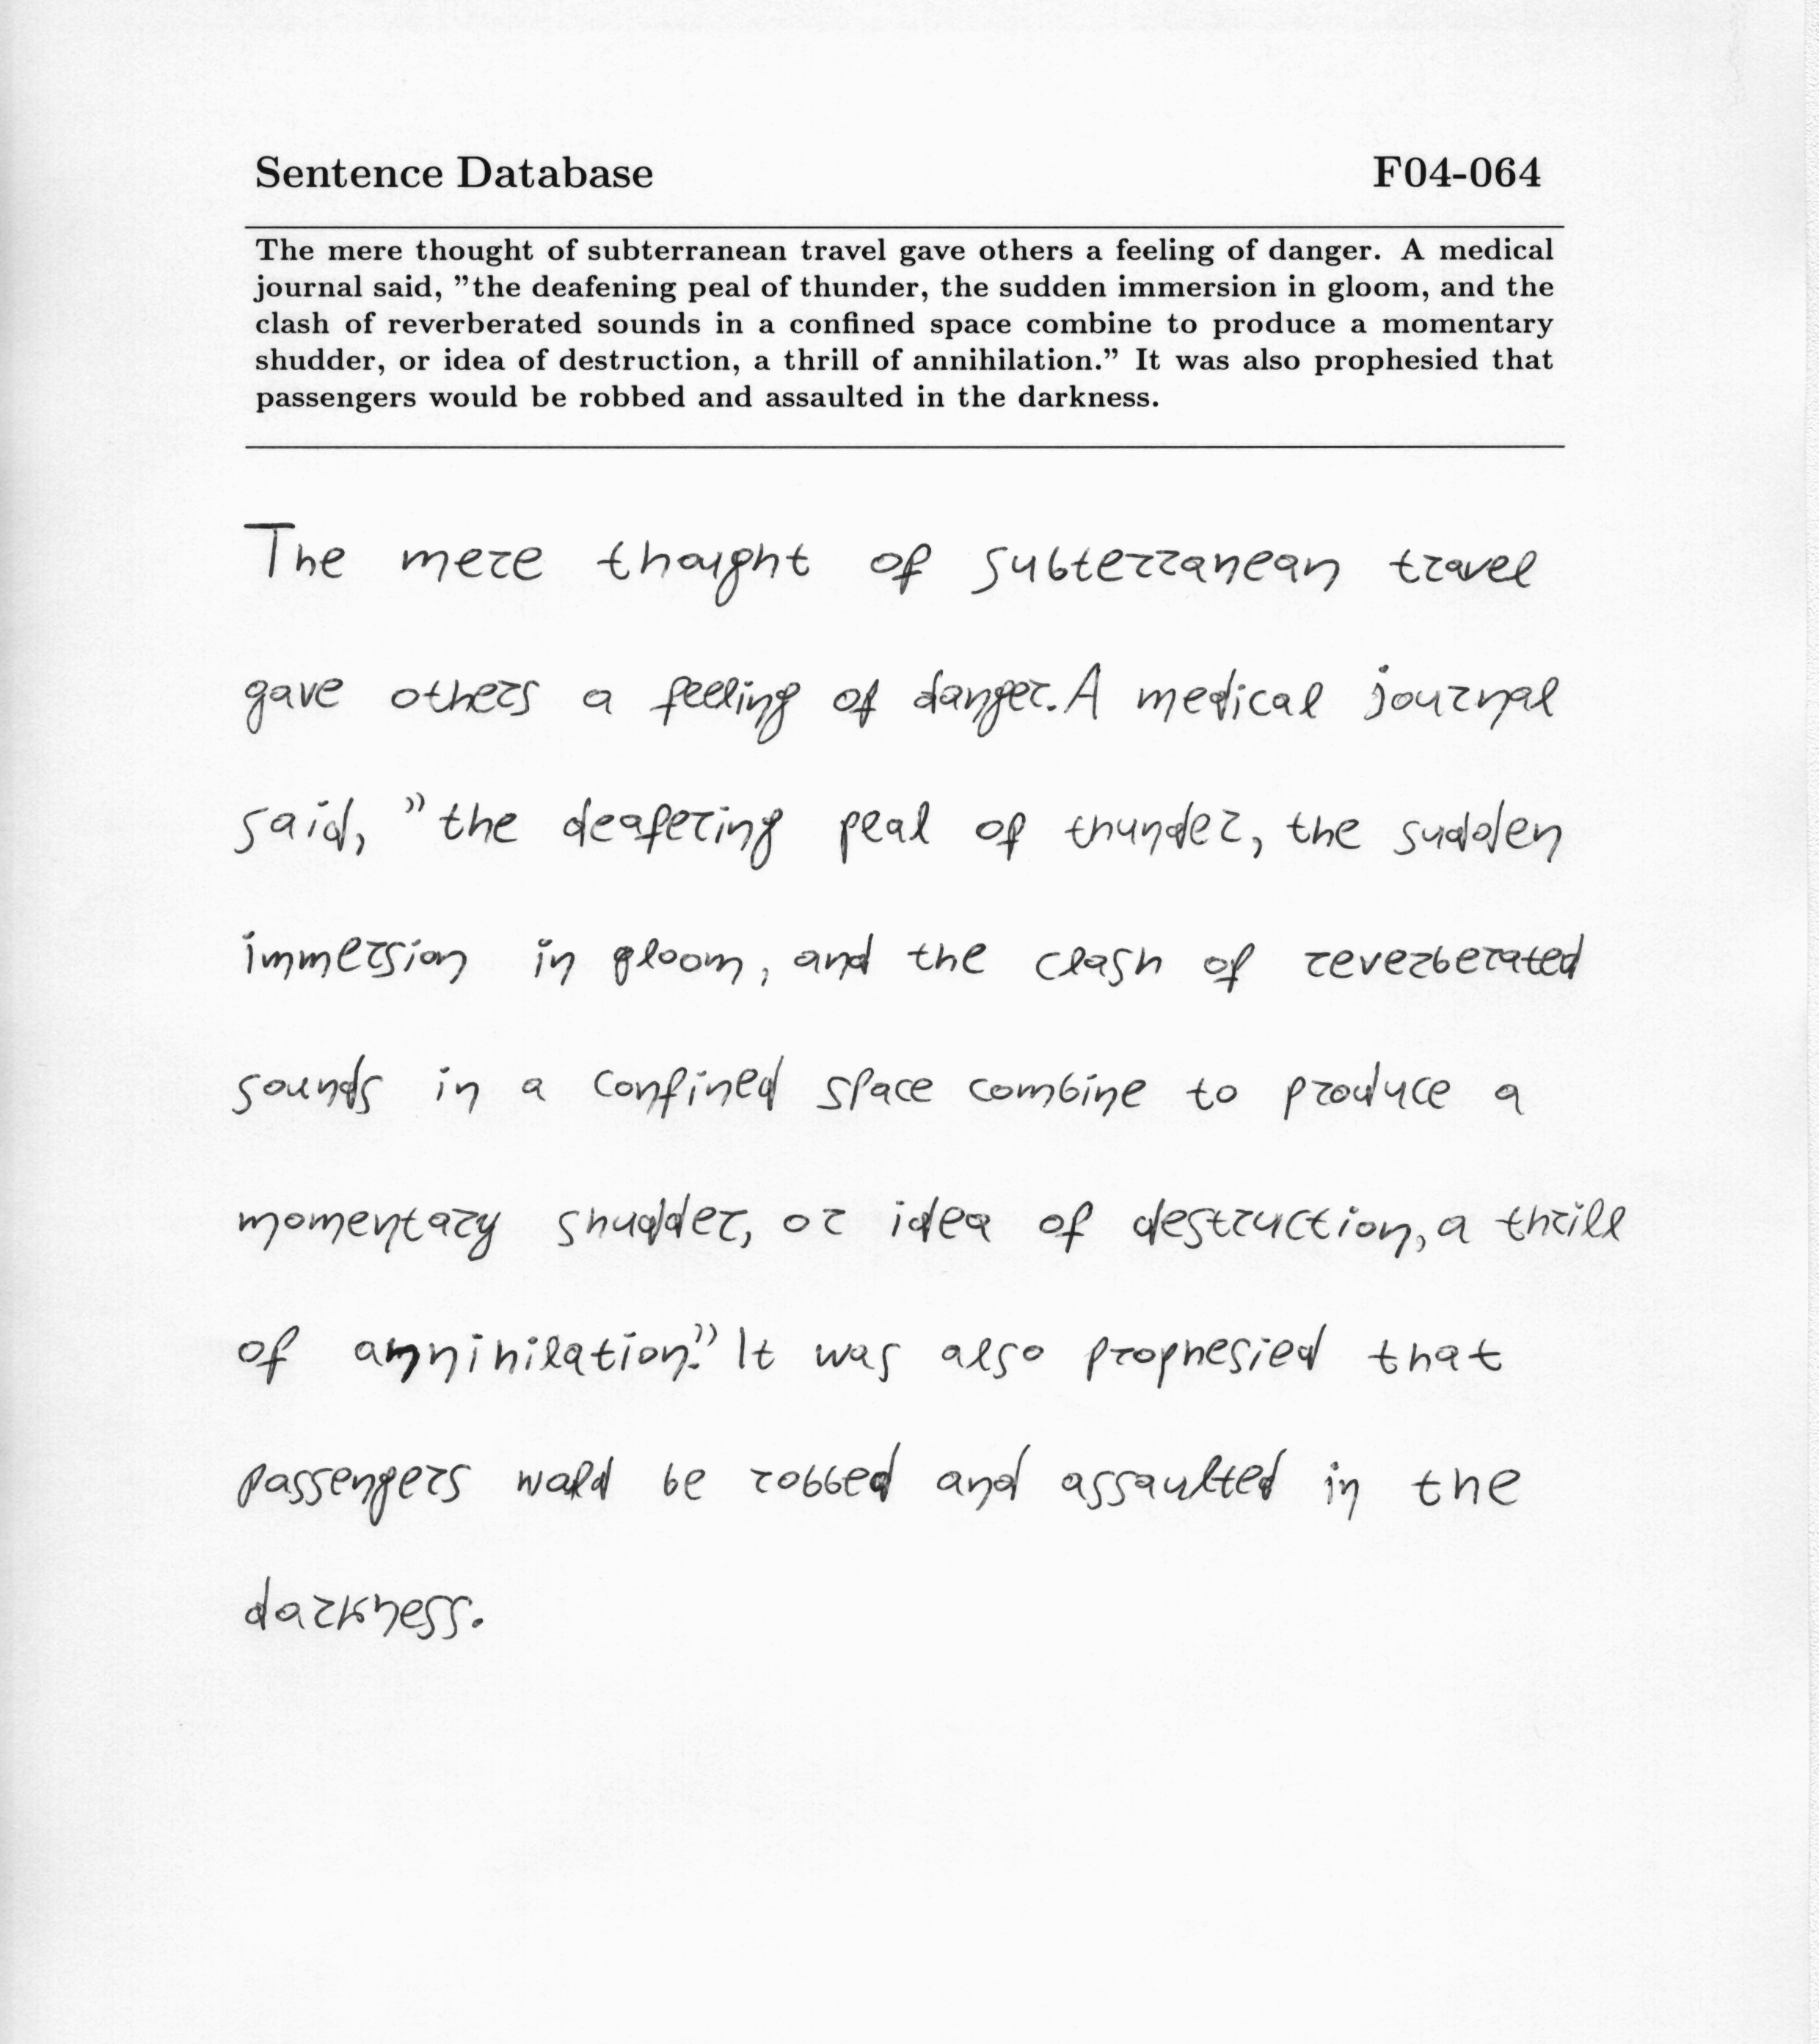 Sentence Database F04-064
The mere thought of subterranean travel gave others a feeling of danger. A medical
journal said, ”the deafening peal of thunder, the sudden immersion in gloom, and the
clash of reverberated sounds in a confined space combine to produce a momentary
shudder, or idea of destruction, a thrill of annihilation.” It was also prophesied that
passengers would be robbed and assaulted in the darkness.
The mere thought of subterranean travel
gave others a feeling of danger. A medical journal
said, ”the deafering peal of thunder, the sudden
immersion in gloom, and the clash of reverberated
sounds in a confined space combine to produce a
momentary shudder, or idea of destruction, a thrill
of annihilation.” It was also prophesied that
passengers would be robbed and assaulted in the
darkness.